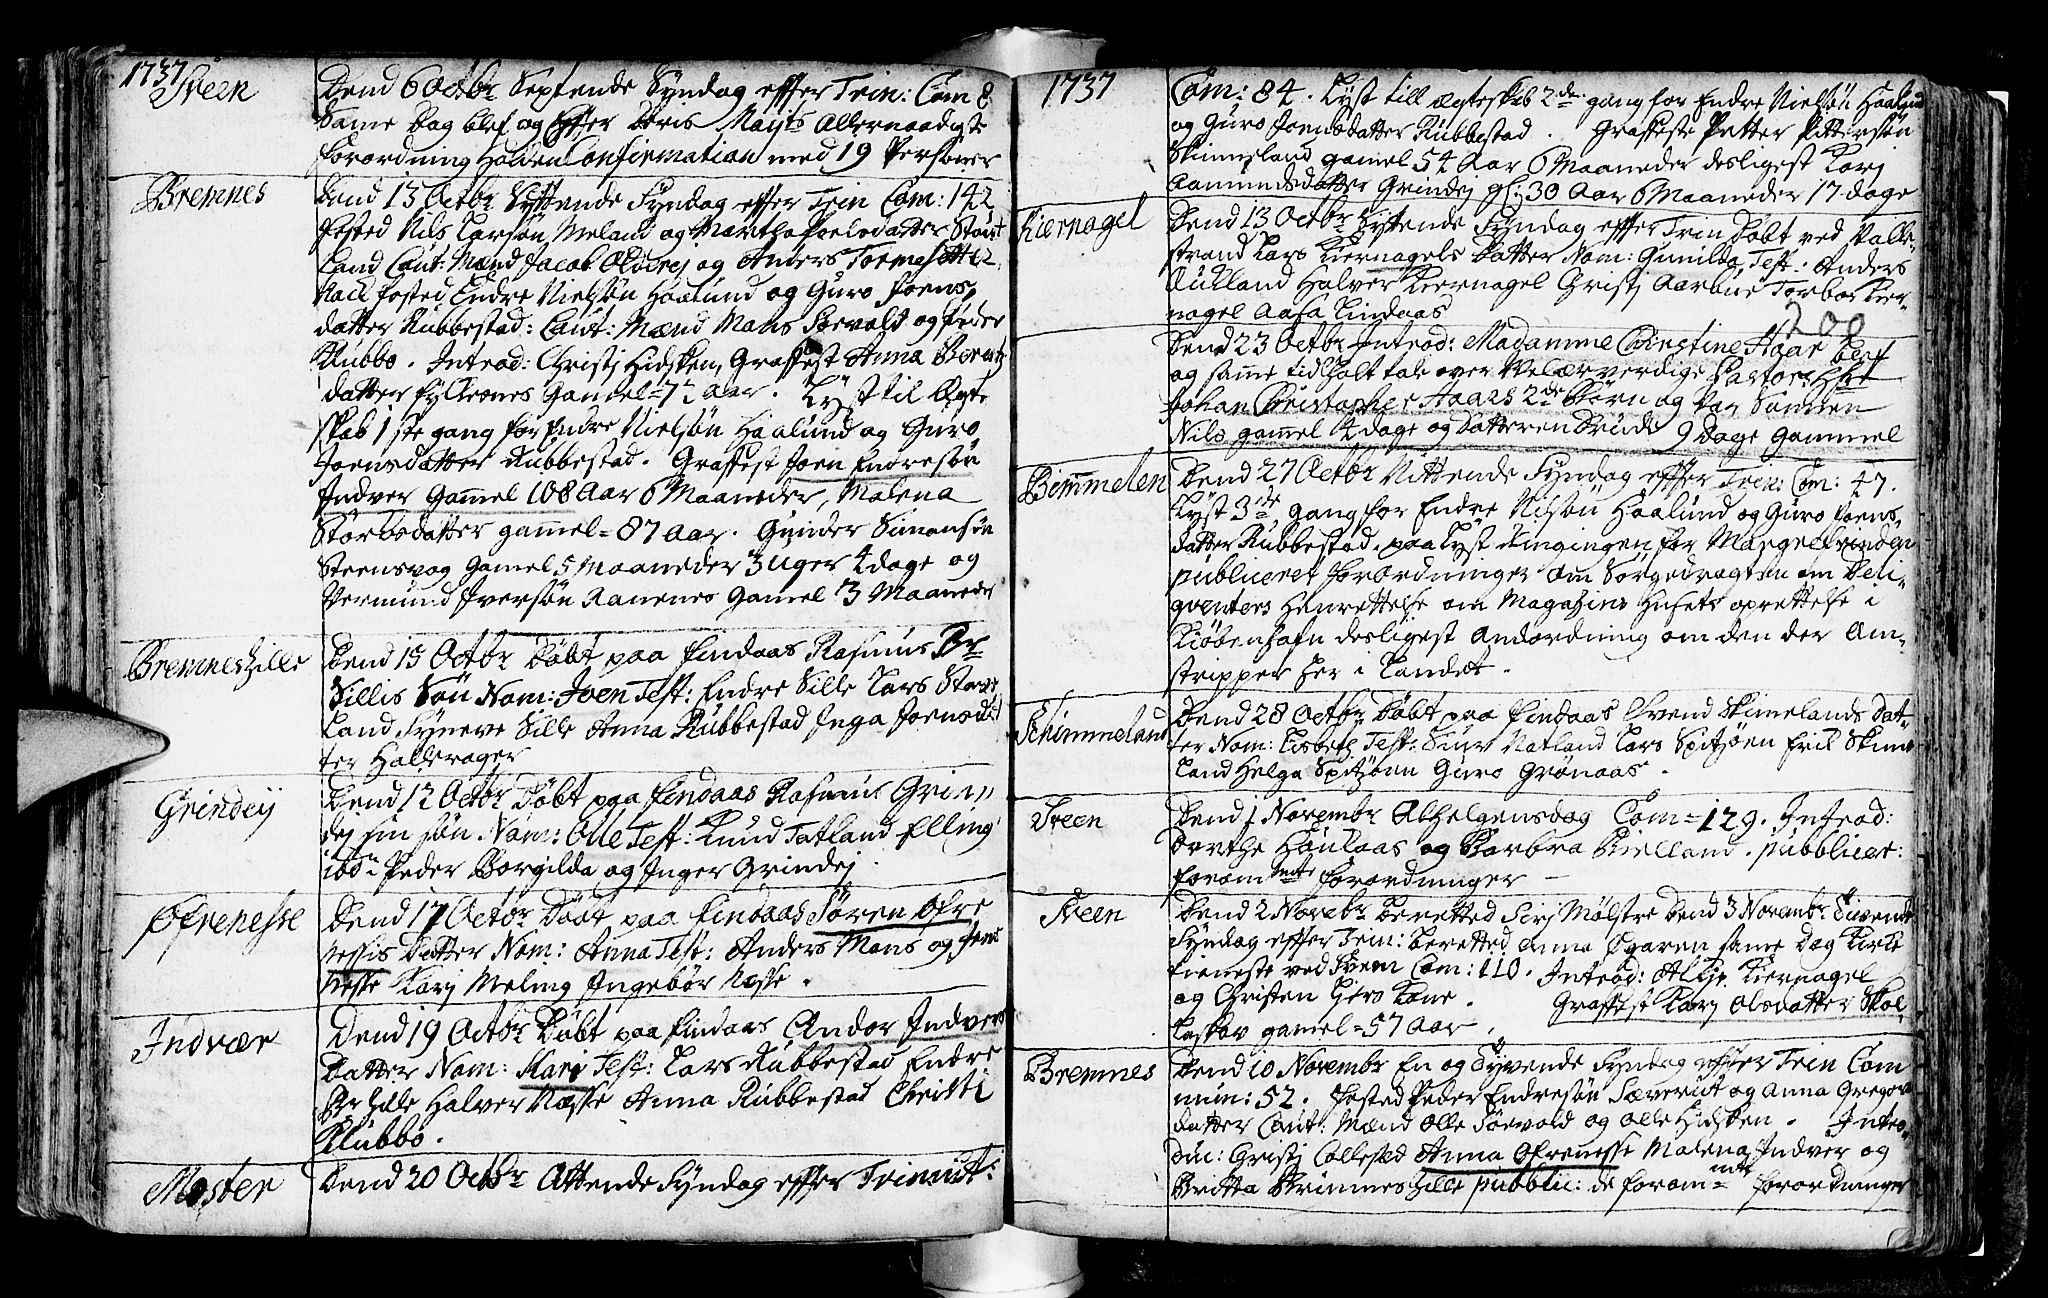 1737
Sveen
Dend 6 Octbr Septende Syndag effter Trin: Com 8
Same Dag blef og effter Deris Mayts Allernaadigte
forordning Holden Confirmation med 19 Personer
Bremnes
Dend 13 Octbr Syttende Syndag effter Trin Com: 142
fosted Nils Larsøn Meland og Martha Poelsdatter
Land Caut: Mænd Jacob og Anders
fosted Endre Nielsøn Haalund og Guro Joens
datter Rubbestad: Caut: Mænd Mans Soevold og Peder
Rubbø. Introd: Christj Hidsken, Graffest Anna
datter fylkesnes Gamel = 72 aar. Lyst til Ægte
skab 1 ste gang for Endre Nielsøn Haalund og Guro
Joensdatter Rubbestad. Graffest Joen Endresøn
Indver Gam̄el 108 Aar 6 Maaneder, Malena
Storksdatter gam̄el = 87 aar. Gunder Simonsøn
Steensvog Gamel 5 Maaneder 3 uger 4 dage og
Vermund Iversøn Aanenes Gamel 3 Maaneder
Bremneszille
Dend 15 Octbr Døbt paa findaas Rasmus Br
Sillis Søn Nom: Joen Test: Endre Sille Lars Stor
land Syneve Sille Anna Rubbestad Inga Joensdat
ter Halleroger
Grindeÿ
Dend 12 Octbr Døbt paa findaas Rasmus Grin
dej sin søn Nom: Olle Test: Knud Tatland Elling
ibd: Peder Borgilda og Inger Grindej
Øfrenesse
Dend 17 Octbr Døbt paa findaas Søren Øfre
nessis Datter Nom: Anna Test: Anders Mans og Jens
nesse Karj Meling Ingebør Næsse.
Indvær
Dend 19 Octbr Døbt paa findaas Andor Indvers
Datter Nom: Mari Test: Lars Rubbestad Endre
Br zille Halver Næsse Anna Rubbestad Christi
Rubbø.
Moster
Dend 20 Octbr Attende Syndag effter Trinit:
1737
Com: 84. Lyst till ægteskab 2de gang for Endre Nielsøn Haalund
og Guro Joensdatter Rubbestad. Graffeste Petter Pittersøn
Skimmeland gamel 54 Aar 6 Maaneder desligest Karj
Aamundsdatter Grindej gl: 30 Aar 6 Maaneder 17 dage
Kiernagel
Dend 13 Octbr Syttende Syndag effter Trin Døbt ved Valle
strand Lars Kiernagels Datter Nom: Gunilda Test: Anders
Aukland Halver Kiernagel Christj Aarbue Torbor Kier
nagel Aasa Lindaas
200
Dend 23 Octbr Introd: Madamme Christine Haar
og samme tid holt tale over Velærverdige Pastoris Hr
Johan Christopher Haars 2de Børn og Var Sønnen
Nils gam̄el 4 dage og Datteren Drude 9 Dage Gammel
Bøm̄melen
Dend 27 Octbr Nittende Syndag effter Trin: Com: 47.
Lyst 3de gang for Endre Nilsøn Haalund og Guro Joens
datter Rubbestad. paa Lyst Ringingen for Margrefvinden
publiceret forordninger om Sørgedragten om Deli
qventers Henrettelse om Magazins Husets oprettelse i
Kiøbenhafn desligest Andordning om den der Om
stripper her i Landet.
Schimmeland
Dend 28 Octbr Døbt paa findaas Svend Skimelands Dat
ter Nom: Lisbeth Test: Siur Natland Lars Spitzøen Erik Skime
land Helga Spitzøen Guro Grønaas.
Sveen
Dend 1 Novembr Alhelgensdag Com = 129. Introd:
Dorthe Houlaas og Barbra Bielland. pubblicer:
forommte forordninger
Sveen
Dend 2 Novebr berettet Sirj Mølstre Dend 3 Novembr tiuvende
Syndag effter Trin: berettet Anna Øgaren same Dag Kirke
tieneste ved Sveen Com: 110. Introd: Kiernagel
og Christen Kone. Graffest Karj Olsdatter Skol
laskov gamel = 57 Aar.
Bremnes
Dend 10 Novembr En og Tyvende Syndag effter Trin Com
mun: 52. fosted Peder Endresøn Sæverut og Anna Gregors
datter Caut: Mænd Olle Soevold og Olle Hidsken. Intro
duc: Gristj Collested Anna Øfrenesse Malena Indver og
Britta Brimneszille pubblic: de forommte forordninger